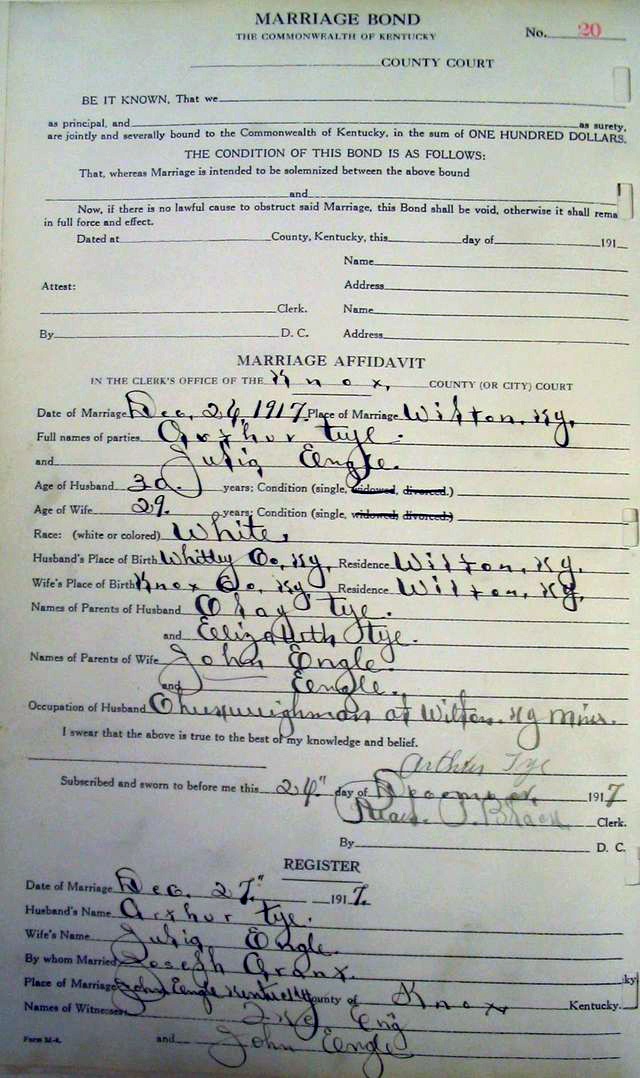 MARRIAGE BOND
THE COMMONWEALTH OF KENTUCKY
No. 20
COUNTY COURT
BE IT KNOWN, That we
as principal, and as surety,
are jointly and severally bound to the Commonwealth of Kentucky, in the sum of ONE HUNDRED DOLLARS.
THE CONDITION OF THIS BOND IS AS FOLLOWS:
That, whereas Marriage is intended to be solemnized between the above bound
and
Now, if there is no lawful cause to obstruct said Marriage, this Bond shall be void, otherwise it shall rema
in full force and effect.
Dated at County, Kentucky, this day of 191
Name
Attest: Address
Clerk. Name
By D. C. Address
MARRIAGE AFFIDAVIT
IN THE CLERK'S OFFICE OF THE Knox, COUNTY (OR CITY) COURT
Date of Marriage Dec, 24, 1917. Place of Marriage Wilton, Ky,
Full names of parties Arthur Tye.
and Julia Eengle.
Age of Husband 30. years; Condition (single, widowed, divorced.)
Age of Wife 29. years; Condition (single, widowed; divorced.)
Race: (white or colored) White,
Husband's Place of Birth Whitley Co, Ky, Residence Wilton, Ky.
Wife's Place of Birth Knox Co, Ky, Residence Wilton, Ky,
Names of Parents of Husband Tye.
and Elizabeth Tye.
Names of Parents of Wife John Engle.
and Eengle.
Occupation of Husband at Wilton, Ky Mines.
I swear that the above is true to the best of my knowledge and belief.
Arthur Tye
Subscribed and sworn to before me this 24" day of December, 1917
Read. Black Clerk.
By D. C.
REGISTER
Date of Marriage Dec. 27." 1917.
Husband's Name Arthur Tye.
Wife's Name Julia Engle.
By whom Married Joseph Grant.
Place of Marriage John Eengle Kentucky County of Knox Kentucky.
Names of Witnesses Eng
and John Eengle
Form M-4.